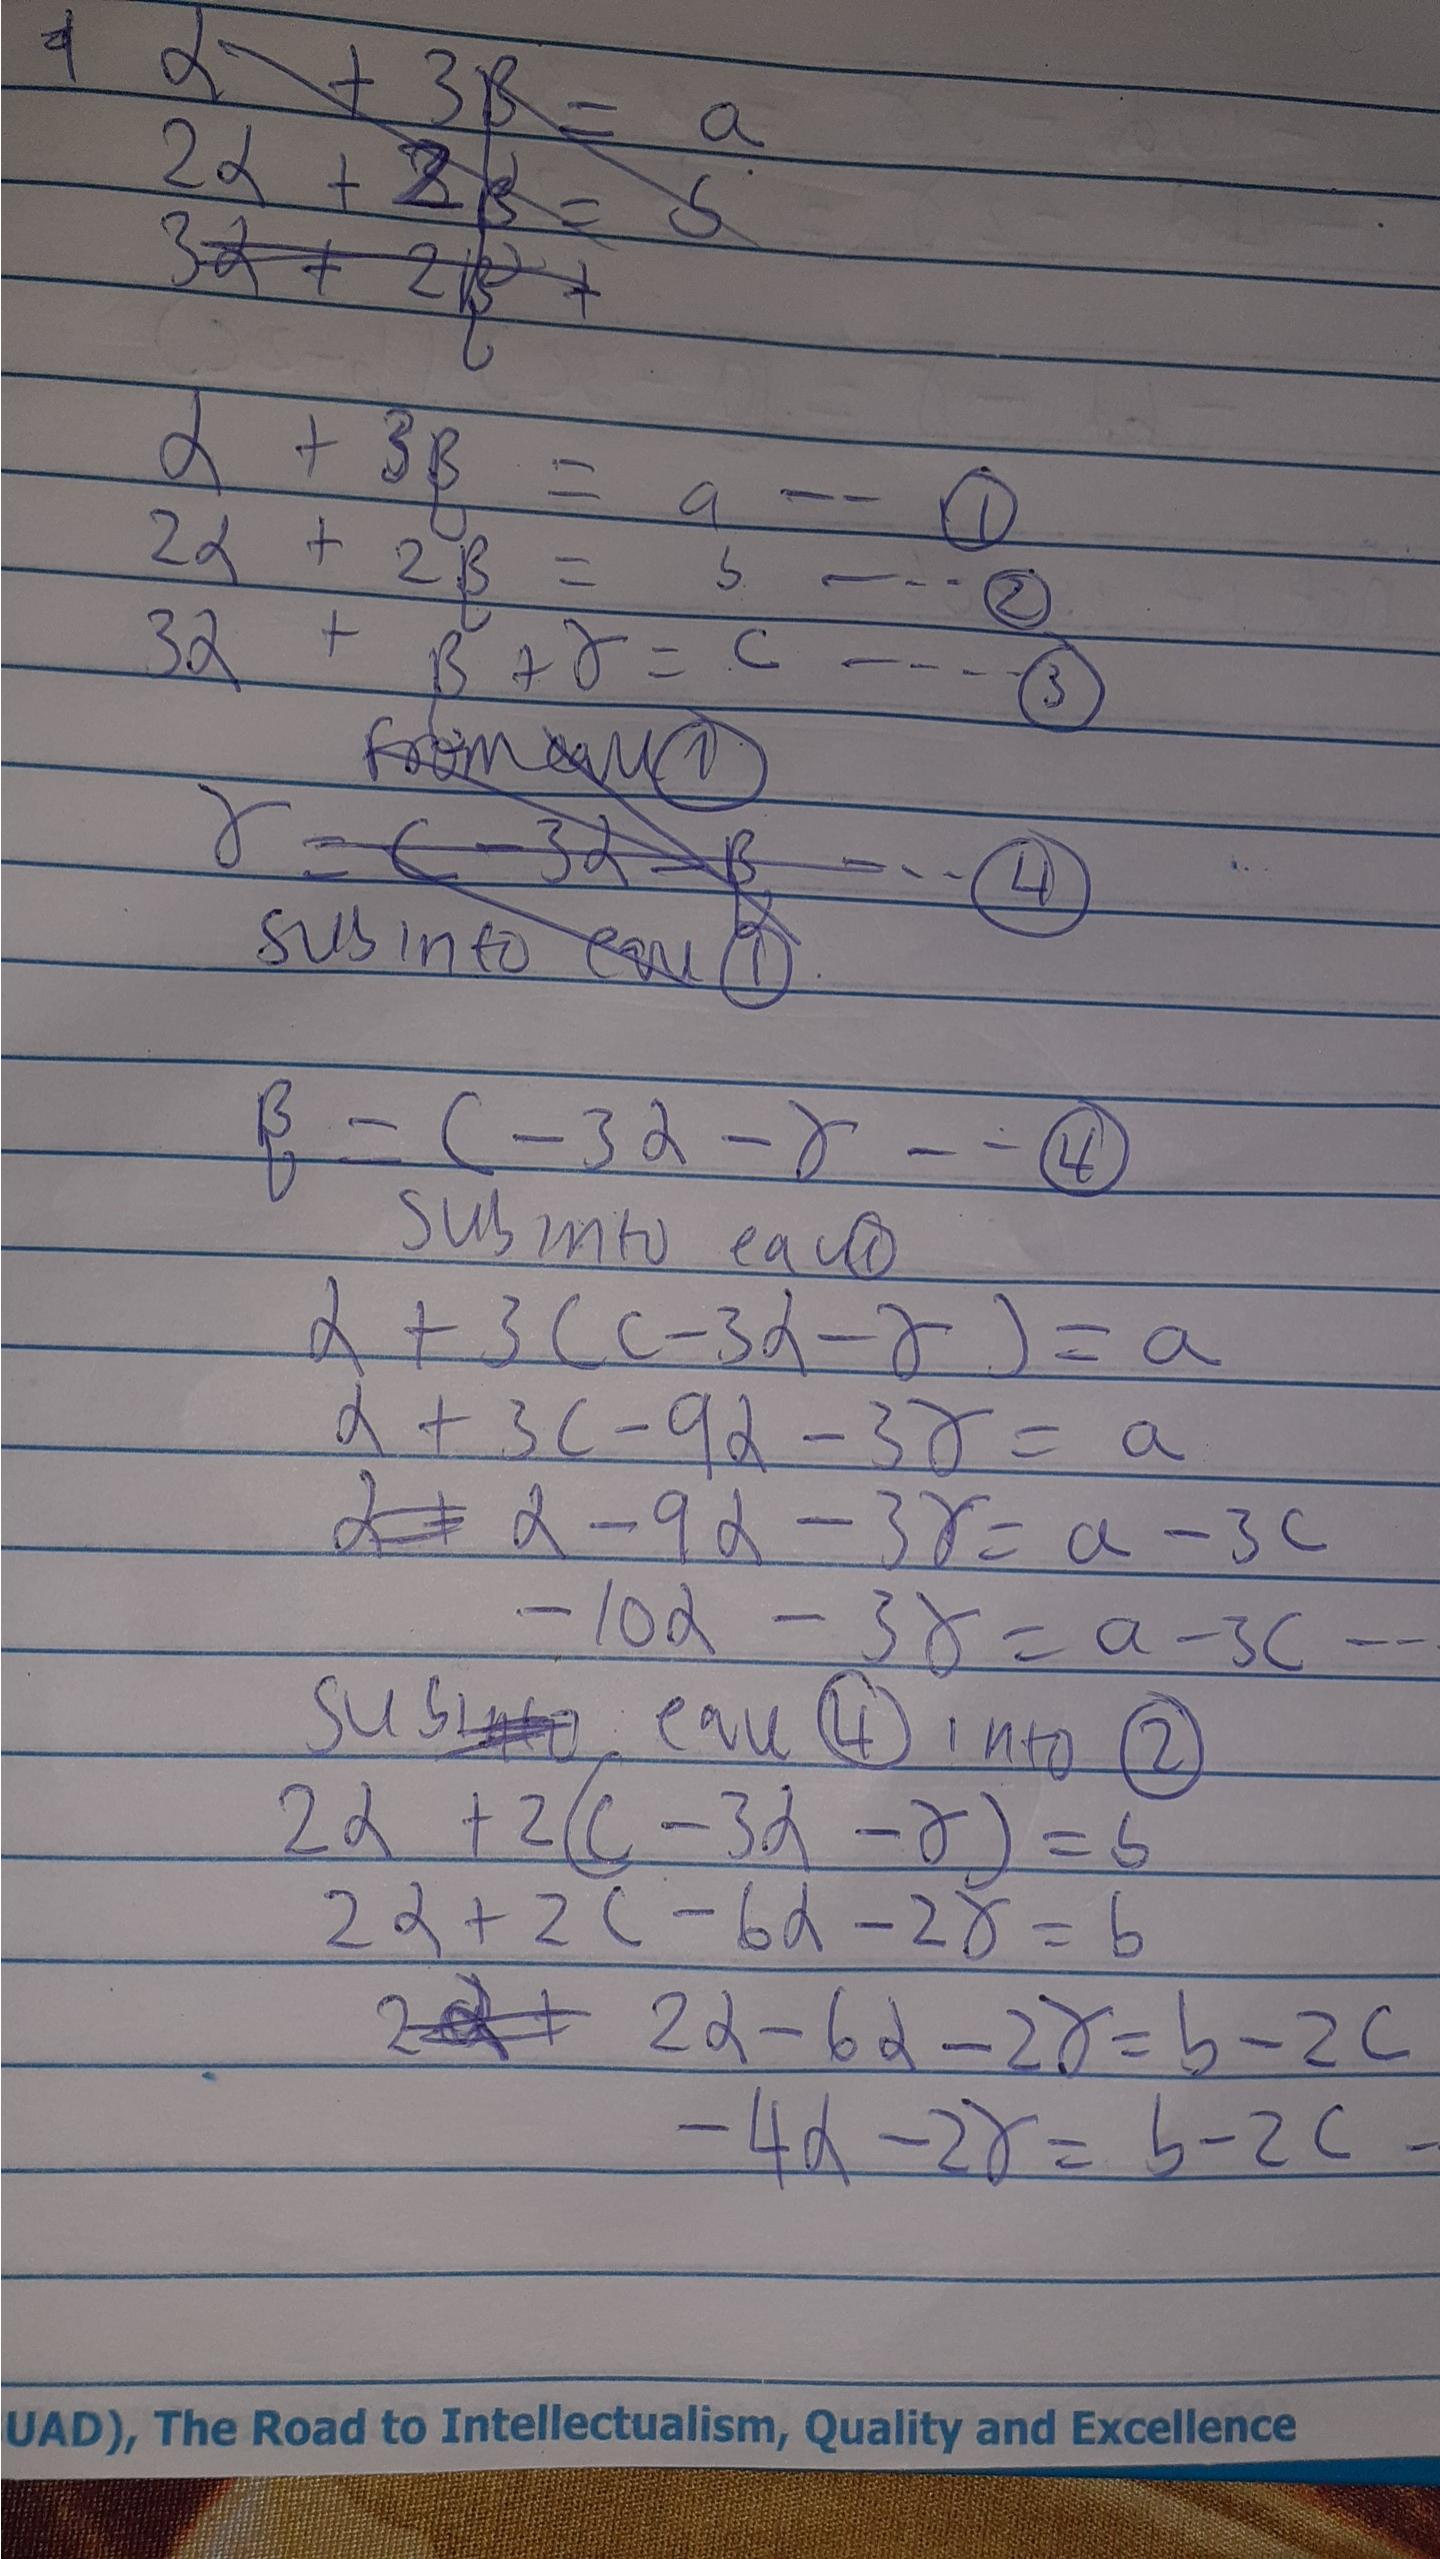 α + 3β = a
2α + 2β = b
3α + 2β +
α + 3β = a --- ①
2α + 2β = b ---- ②
3α + β + γ = c ----- ③
from equ ①
γ = c - 3α - β ---- ④
sub into equ ①
β = c - 3α - γ --- ④
sub into equ ①
α + 3(c - 3α - γ) = a
α + 3c - 9α - 3γ = a
α + α - 9α - 3γ = a - 3c
-10α - 3γ = a - 3c ---
sub into equ ④ into ②
2α + 2(c - 3α - γ) = b
2α + 2c - 6α - 2γ = b
2α + 2α - 6α - 2γ = b - 2c
-4α - 2γ = b - 2c -
UAD), The Road to Intellectualism, Quality and Excellence